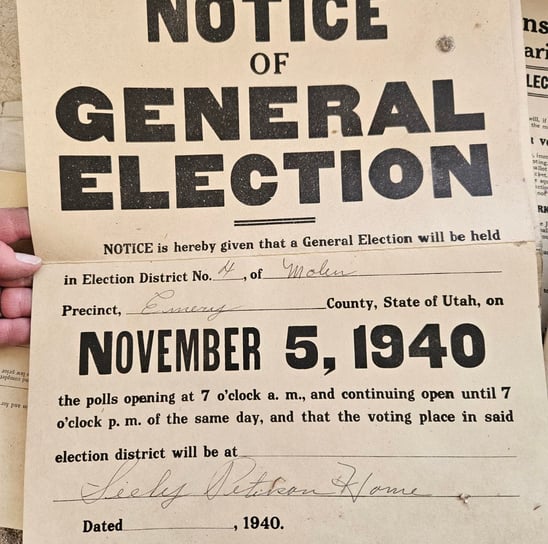 NOTICE
OF
GENERAL
ELECTION
NOTICE is hereby given that a General Election will be held
in Election District No. 4, of Molen
Precinct, Emery County, State of Utah, on
NOVEMBER 5, 1940
the polls opening at 7 o'clock a. m., and continuing open until 7
o'clock p. m. of the same day, and that the voting place in said
election district will be at
Seely Peterson Home
Dated , 1940.